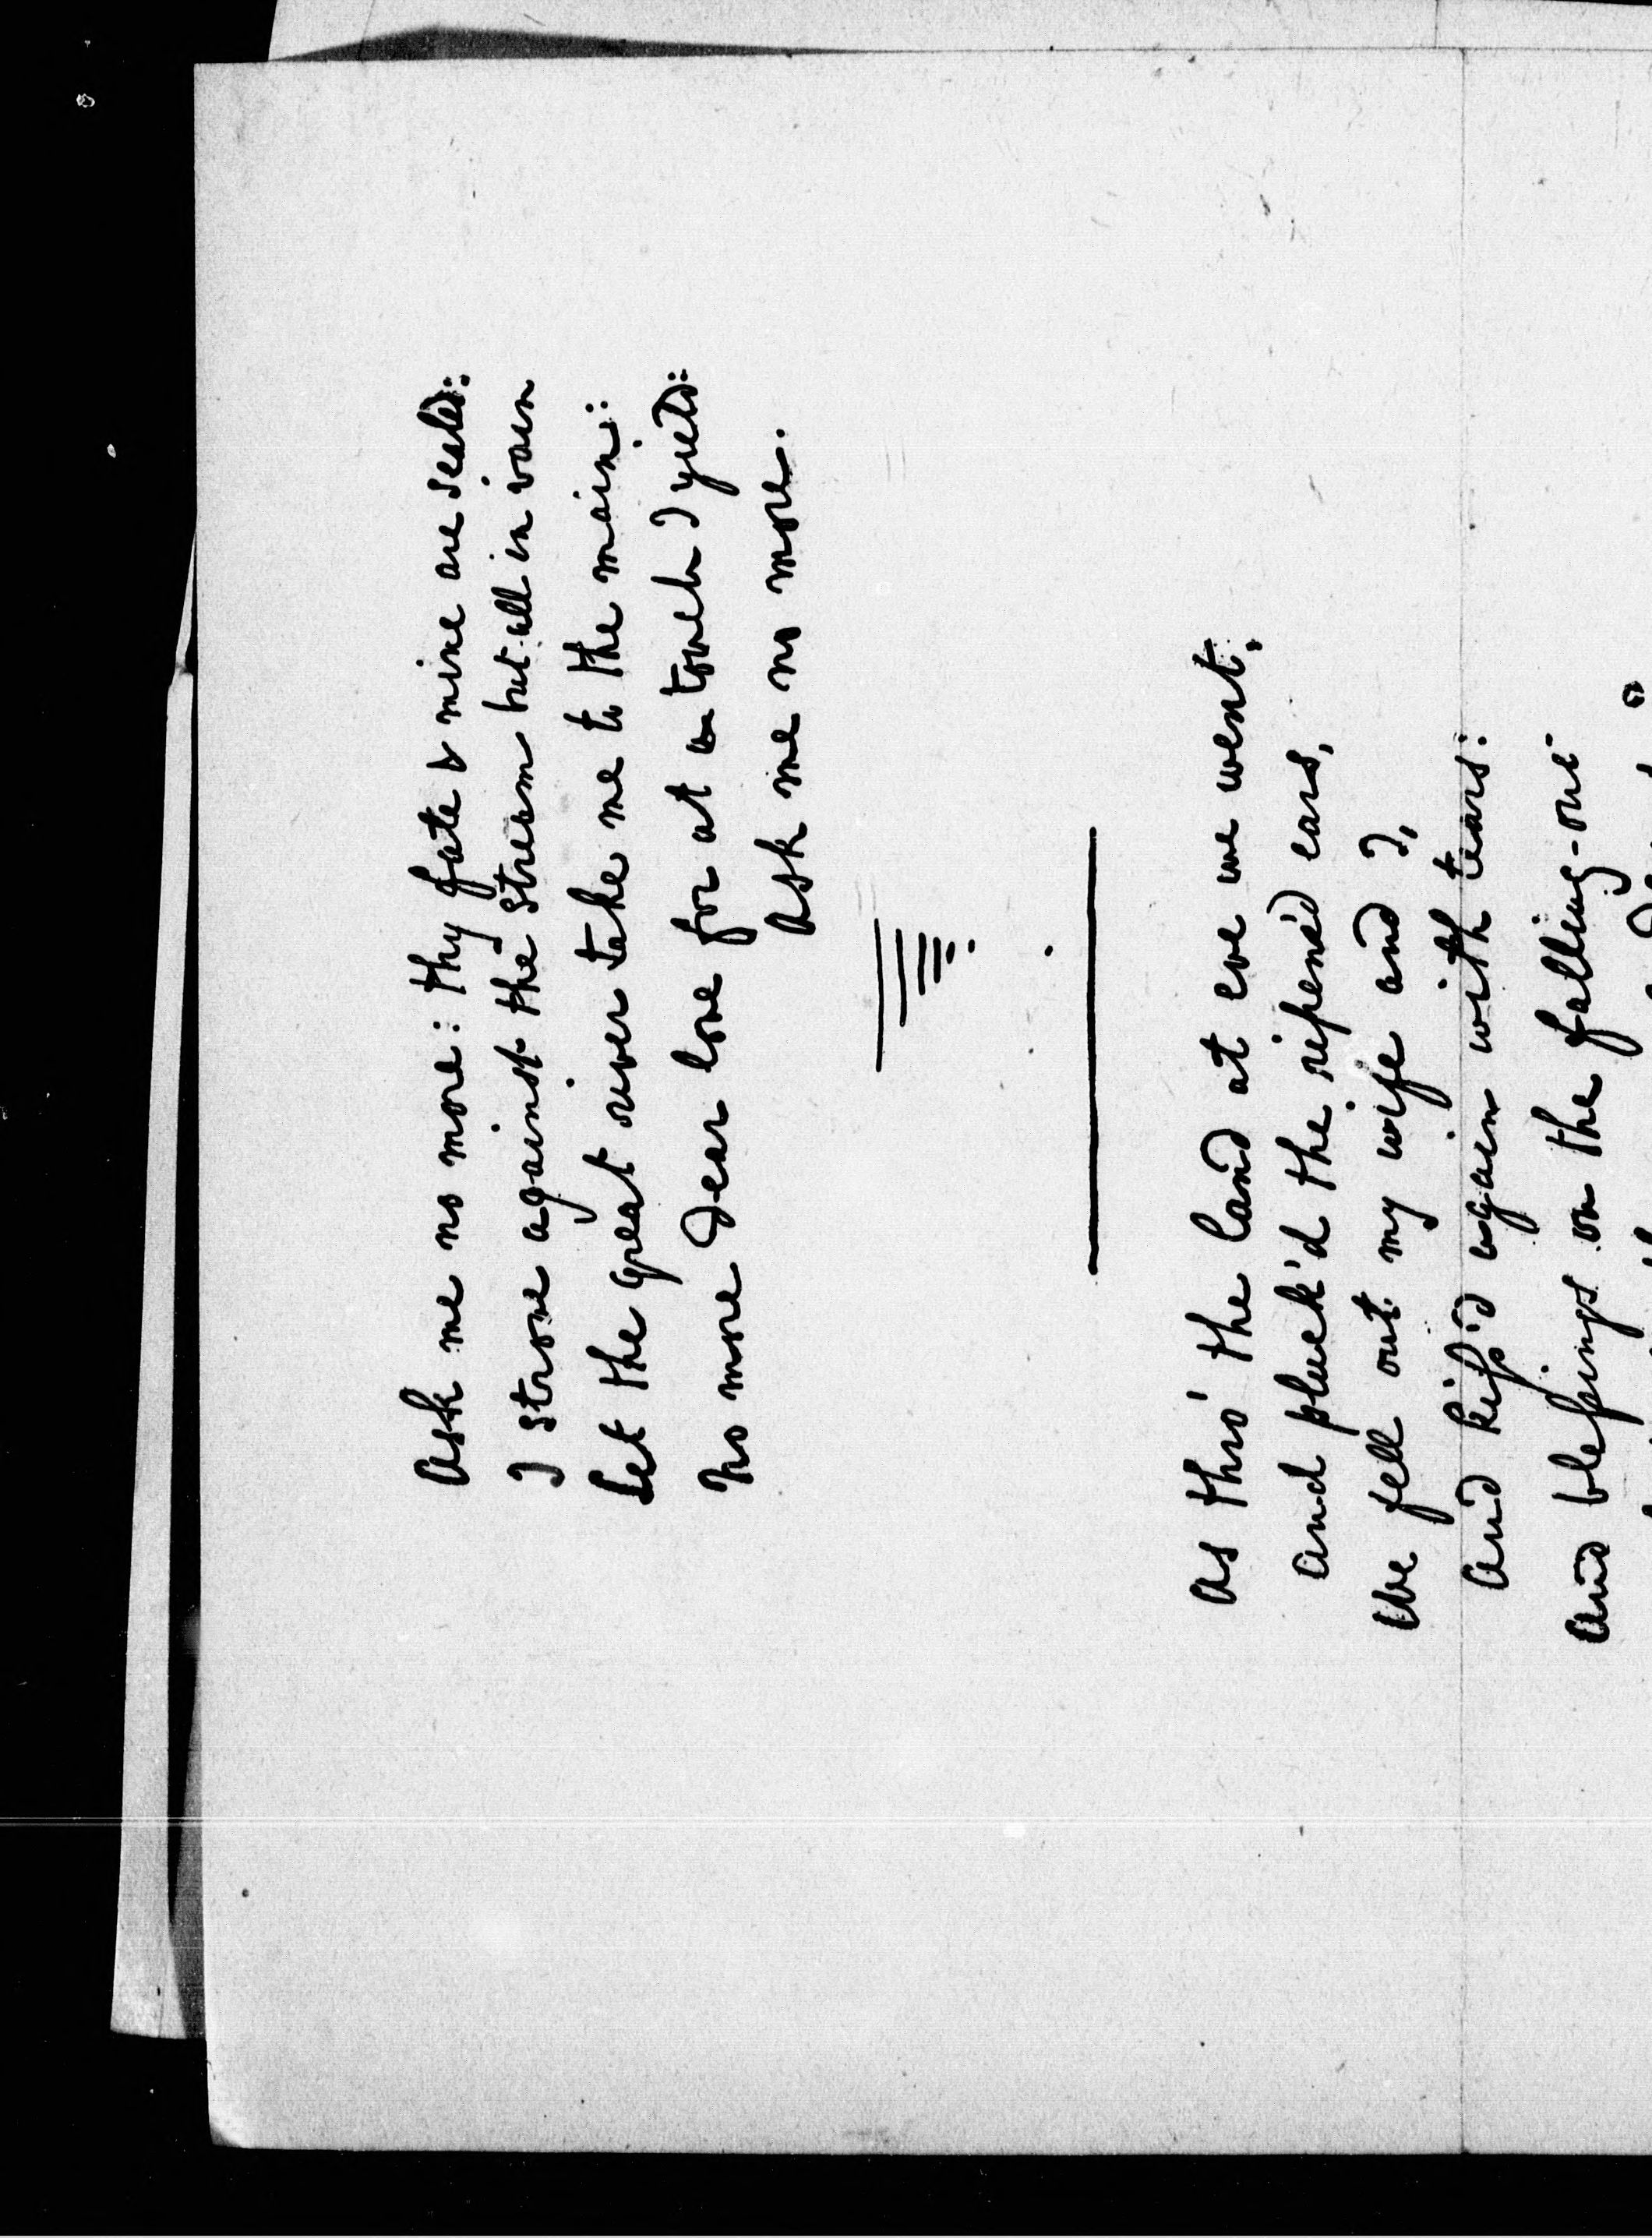 Ask me no more: thy fate & mine are seal'd:
I strove against the stream but all in vain
Let the great river take me to the main:
No more dear love for at a touch I yield:
Ask me no more.
As thro' the land at eve we went,
and pluck'd the ripen'd ears,
We fell out my wife and I,
And kiss'd again with tears:
And blessings on the falling-out